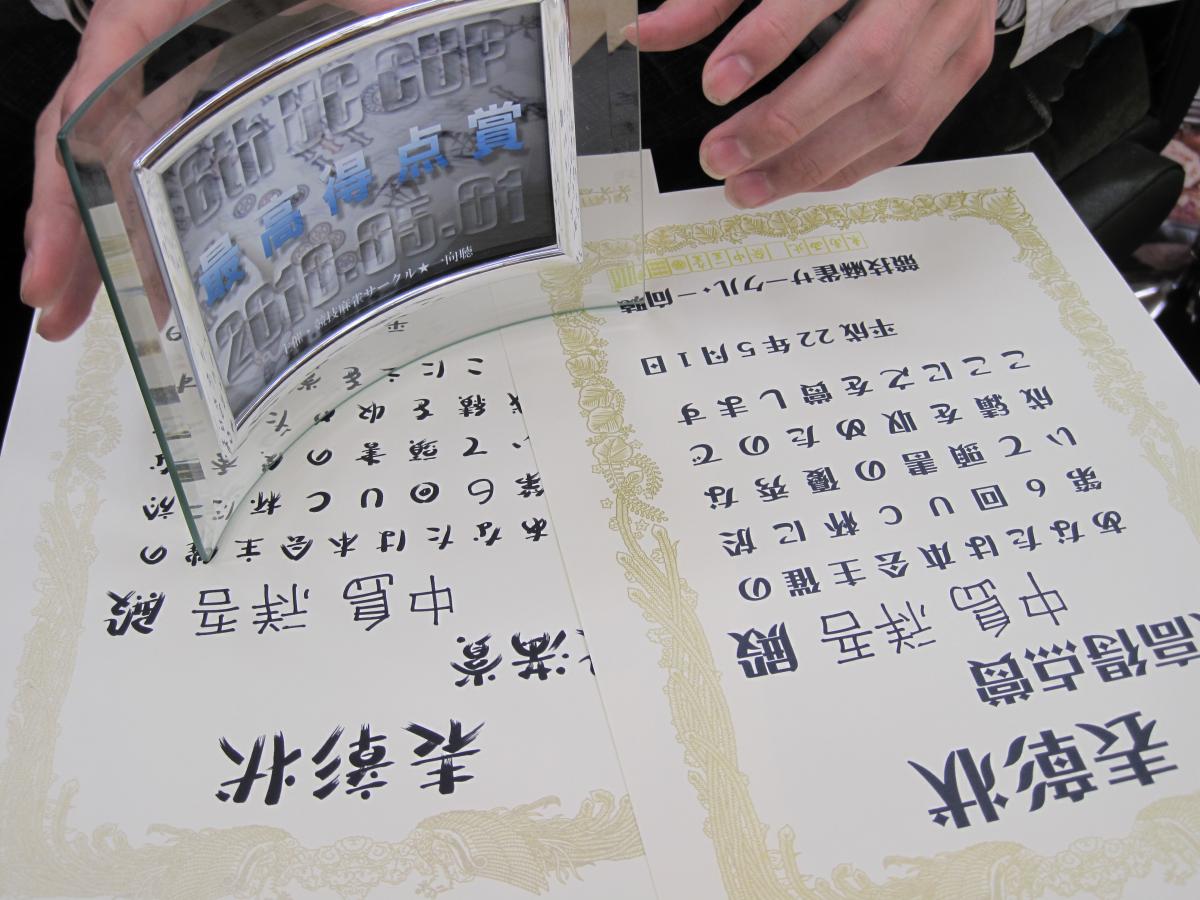 6th UC CUP
最高得点賞
2010.05.01
主催：競技麻雀サークル★一向聴
表彰状
高得点賞
中島 祥吉 殿
あなたは本会主催の
第６回ＵＣ杯に於
いて頭書の優秀な
成績を収めたので
ここに之を賞します
平成２２年５月１日
競技麻雀サークル・一向聴
表彰状
満賞
中島 祥吉 殿
あなたは本会主催の
第６回ＵＣ杯に於
て頭書の優秀な
績を収めた
ここに之を賞
平